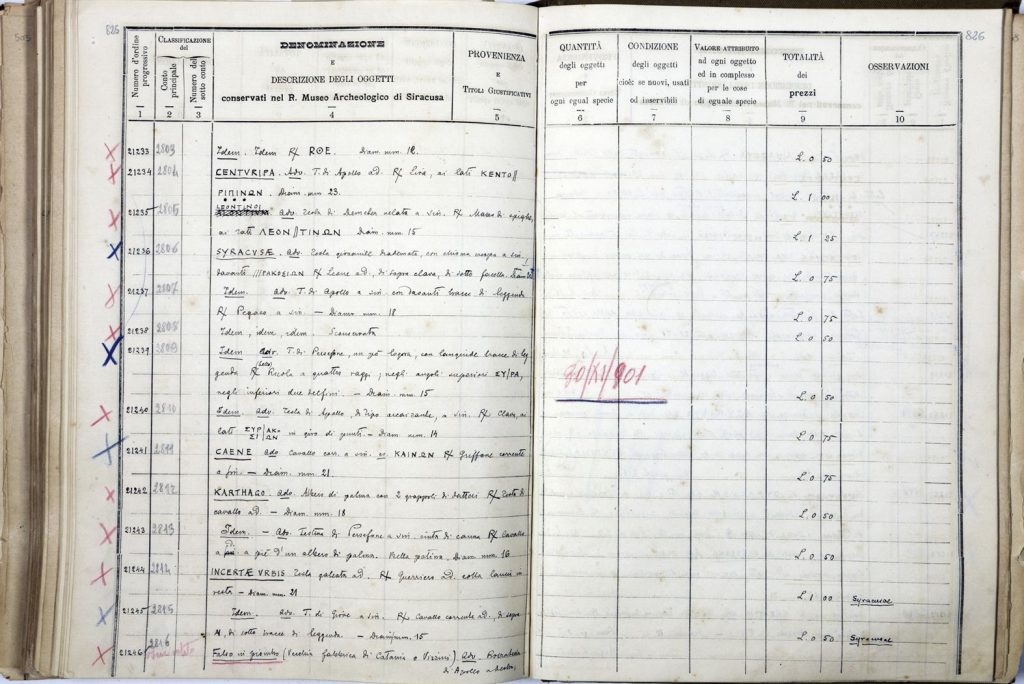 825
Numero d'ordine progressivo
CLASSIFICAZIONE del
Conto principale
Numero del sotto conto
DENOMINAZIONE
E
DESCRIZIONE DEGLI OGGETTI
conservati nel R. Museo Archeologico di Siracusa
PROVENIENZA
E
TITOLI GIUSTIFICATIVI
1 2 3 4 5
21233 2803 Idem. Idem R/ ROE. Diam. mm. 12.
21234 2804 CENTVRIPA. Adv. T. di Apollo ad. R/ Lira, ai lati KENTO//
ΡΙΠΙΝΩΝ. Diam. mm 23.
LEONTINOI
21235 2805 Adv. Testa di Demeter velata a sin. R/ Mazzo di spighe,
ai lati ΛΕΟΝ//ΤΙΝΩΝ Diam. mm. 15
21236 2806 SYRACVSÆ. Adv. Testa giovanile diademata, a sin.,
davanti ///ΡΑΚΟΣΙΩΝ R/ Leone ad., di sopra clava, di sotto Diam
21237 2807 Idem. Adv. T. di Apollo a sin. con davanti tracce di leggenda
R/ Pegaso a sin — Diam. mm. 18
21238 2808 Idem, idem, idem. Sconservata
21239 2809 Idem Adv. T. di Persefone, un più logora, con languide tracce di leg
genda R/ Rozola a quattro raggi; negli angoli superiori ΣΥ/ΡΑ,
negli inferiori due delfini. — Diam. mm. 15
21240 2810 Idem. Adv. Testa di Apollo, di tipo arcaizzante, a sin. R/ Clava, ai
lati ΣΥΡ ΑΚΟ ΣΙ ΩΝ in giro di punti. — Diam. mm. 14
21241 2811 CAENE Adv. Cavallo corr. a sin. es. ΚΑΙΝΩΝ R/ Griffone corrente
a sin. — Diam. mm 21.
21242 2812 KARTHAGO. Adv. Albero di palma con 2 grappoli di datteri R/ Testa di
cavallo ad. — Diam. mm. 18
21243 2813 Idem. — Adv. Testina di Persefone a sin. cinta di canne R/ Cavallo
a d. a piè d'un albero di palma. Bella patina. Diam mm. 16
21244 2814 INCERTÆ VRBIS Testa galeata ad. R/ Guerriero ad. colla lancia in
resta — Diam. mm. 21
21245 2815 Idem. Adv. T. di Giove a sin. R/ Cavallo corrente ad., di sopra
N, di sotto tracce di leggenda. — Diam. mm. 15
21246 2816 Falso in piombo (Vecchia fabbrica di Catania o Vizzini) Adv.
di Apollo a destra,
826
QUANTITÀ
degli oggetti
per
ogni egual specie
CONDIZIONE
degli oggetti
cioè: se nuovi, usati
od inservibili
VALORE ATTRIBUITO
ad ogni oggetto
ed in complesso
per le cose
di eguale specie
TOTALITÀ
dei
prezzi
OSSERVAZIONI
6 7 8 9 10
L. 0 50
L. 1 00
L. 1 25
L. 0 75
L. 0 75
L. 0 50
30/XI/901
L. 0 50
L. 0 75
L. 0 75
L. 0 50
L. 0 50
L. 1 00 Syracusae
L. 0 50 Syracusae